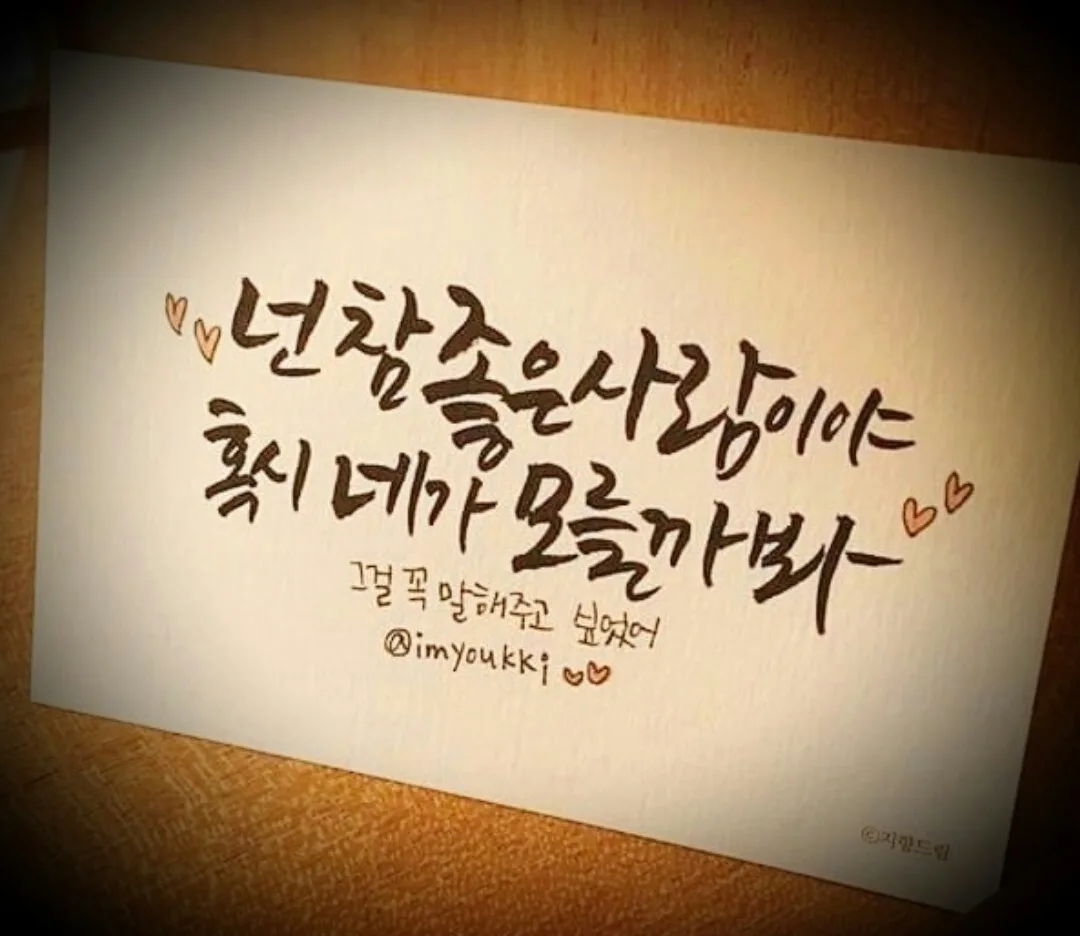 넌 참 좋은 사람이야
혹시 네가 모를까봐
그걸 꼭 말해주고 싶었어
@imyoukki